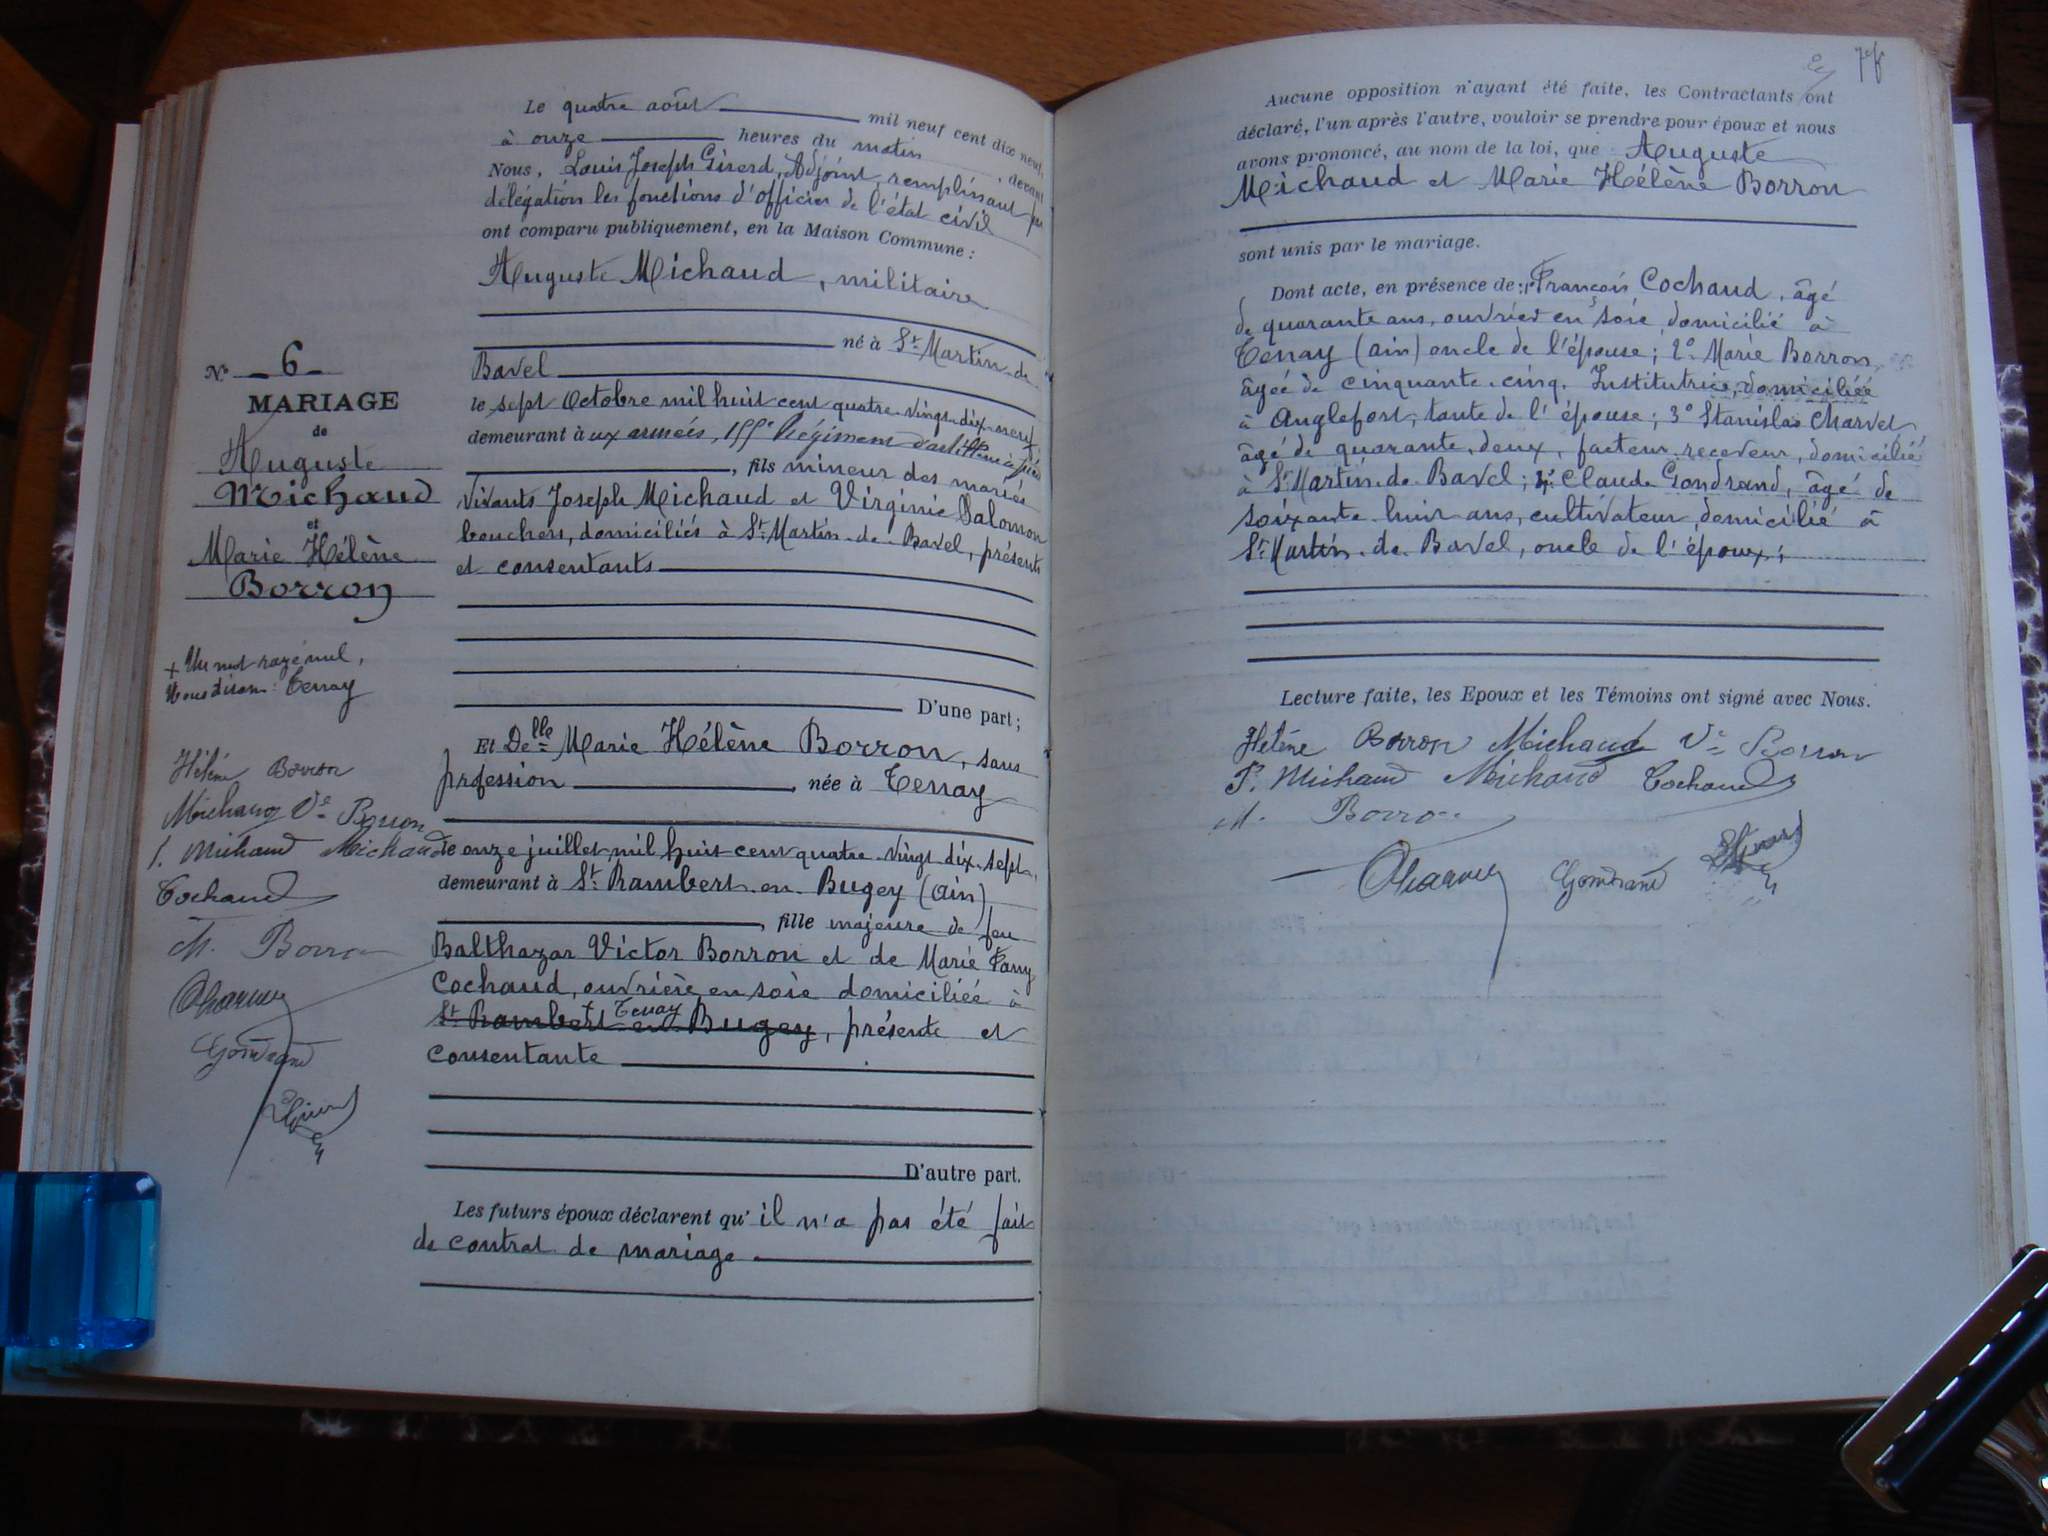 Le quatre août mil neuf cent dix neuf,
à onze heures du matin, devant
Nous, Louis Joseph Girerd, Adjoint, remplissant par
délégation les fonctions d'officier de l'état civil
ont comparu publiquement, en la Maison Commune :
Auguste Michaud, militaire
né à St Martin-de-
Bavel
le sept Octobre mil huit cent quatre-vingt-dix-neuf,
demeurant à ux armées, Régiment d'artillerie à pied
, fils mineur des mariés
vivants Joseph Michaud et Virginie Salomon
bouchers, domiciliés à St Martin-de-Bavel, présents
et consentants
D'une part ;
Et Delle Marie Hélène Borron, sans
profession, née à Tenay
le onze juillet mil huit cent quatre-vingt dix-sept,
demeurant à St Rambert-en-Bugey (ain)
, fille majeure de feu
Balthazar Victor Borron et de Marie Fany
Cochaud, ouvrière en soie domiciliée à
+ Tenay
St Rambert en Bugey, présente et
consentante
D'autre part.
Les futurs époux déclarent qu'il n'a pas été fait
de contrat de mariage
No 6
MARIAGE
de
Auguste
Michaud
et
Marie Hélène
Borron
+ Un mot rayé nul,
Nous disons : Tenay
Hélène Borron
Michaud Ve Borron
J. Michaud Michaud
Cochaud
M. Borron
Charvet
Gondrand
Aucune opposition n'ayant été faite, les Contractants ont
déclaré, l'un après l'autre, vouloir se prendre pour époux et nous
avons prononcé, au nom de la loi, que Auguste
Michaud et Marie Hélène Borron
sont unis par le mariage.
Dont acte, en présence de : 1° François Cochaud, âgé
de quarante ans, ouvrier en soie, domicilié à
Tenay (ain) oncle de l'épouse ; 2° Marie Borron,
âgée de cinquante-cinq, Institutrice, domiciliée
à Anglefort, tante de l'épouse ; 3° Stanislas Charvet
âgé de quarante-deux, facteur-receveur, domicilié
à St Martin-de-Bavel ; 4° Claude Gondrand, âgé de
soixante-huit ans, cultivateur, domicilié à
St Martin-de-Bavel, oncle de l'époux ;
Lecture faite, les Epoux et les Témoins ont signé avec Nous.
Hélène Borron Michaud Ve Borron
J. Michaud Michaud Cochaud
M. Borron
Charvet Gondrand